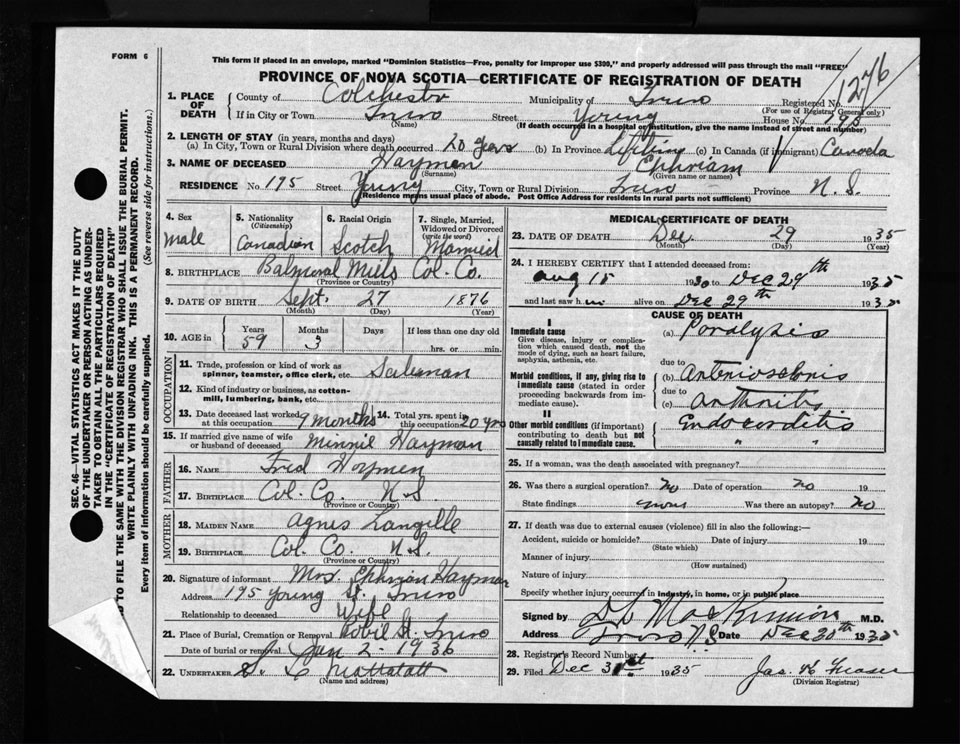 FORM 6
This form if placed in an envelope, marked "Dominion Statistics—Free, penalty for improper use $300," and properly addressed will pass through the mail "FREE"
PROVINCE OF NOVA SCOTIA—CERTIFICATE OF REGISTRATION OF DEATH
1276
1. PLACE OF DEATH
County of Colchester Municipality of Truro Registered No.
(For use of Registrar General only)
If in City or Town Truro Street Young House No. 195
(Name) (If death occurred in a hospital or institution, give the name instead of street and number)
2. LENGTH OF STAY (in years, months and days)
(a) In City, Town or Rural Division where death occurred 20 years (b) In Province Lifetime (c) In Canada (if immigrant) Canada
3. NAME OF DECEASED Haymen Ephriam
(Surname) (Given name or names)
RESIDENCE No. 195 Street Young City, Town or Rural Division Truro Province N. S.
(Residence means usual place of abode. Post Office Address for residents in rural parts not sufficient)
4. Sex
male
5. Nationality
(Citizenship)
Canadian
6. Racial Origin
Scotch
7. Single, Married, Widowed or Divorced
(write the word)
Married
8. BIRTHPLACE Balmoral Mills Col. Co.
(Province or Country)
9. DATE OF BIRTH Sept. 27 1876
(Month) (Day) (Year)
10. AGE in Years Months Days If less than one day old
59 3 hrs. or min.
OCCUPATION
11. Trade, profession or kind of work as spinner, teamster, office clerk, etc. Salesman
12. Kind of industry or business, as cotton-mill, lumbering, bank, etc.
13. Date deceased last worked at this occupation 9 months 14. Total yrs. spent in this occupation 20 yrs
15. If married give name of wife or husband of deceased Minnie Hayman
FATHER
16. NAME Fred Haymen
17. BIRTHPLACE Col. Co. N. S.
(Province or Country)
MOTHER
18. MAIDEN NAME Agnes Langille
19. BIRTHPLACE Col. Co. N. S.
(Province or Country)
20. Signature of informant Mrs. Ephriam Hayman
Address 195 Young St. Truro
Relationship to deceased Wife
21. Place of Burial, Cremation or Removal Robie St. Truro
Date of burial or removal Jan 2 - 1936
22. UNDERTAKER Mattatall
(Name and address)
MEDICAL CERTIFICATE OF DEATH
23. DATE OF DEATH Dec. 29 1935
(Month) (Day) (Year)
24. I HEREBY CERTIFY that I attended deceased from:
Aug 15 1930 to Dec 29th 1935
and last saw him alive on Dec 29th 1935
CAUSE OF DEATH
I
Immediate cause
Give disease, injury or complication which caused death, not the mode of dying, such as heart failure, asphyxia, asthenia, etc.
(a) Paralysis
due to
Morbid conditions, if any, giving rise to immediate cause (stated in order proceeding backwards from immediate cause).
(b) Arteriosclerosis
due to
(c) Arthritis
II
Other morbid conditions (if important) contributing to death but not causally related to immediate cause.
Endocarditis
" "
25. If a woman, was the death associated with pregnancy?
26. Was there a surgical operation? No Date of operation no 19
State findings Was there an autopsy? No
27. If death was due to external causes (violence) fill in also the following:—
Accident, suicide or homicide? Date of injury 19
(State which)
Manner of injury
(How sustained)
Nature of injury
Specify whether injury occurred in industry, in home, or in public place
Signed by M.D.
Address Truro N.S. Date Dec 30th 1935
28. Registrar's Record Number
29. Filed Dec 31st 1935 Jas. K. Fraser
(Division Registrar)
SEC. 46—VITAL STATISTICS ACT MAKES IT THE DUTY
OF THE UNDERTAKER OR PERSON ACTING AS UNDER-
TAKER TO OBTAIN ALL THE PARTICULARS REQUIRED
IN THE "CERTIFICATE OF REGISTRATION OF DEATH"
TO FILE THE SAME WITH THE DIVISION REGISTRAR WHO SHALL ISSUE THE BURIAL PERMIT.
WRITE PLAINLY WITH UNFADING INK. THIS IS A PERMANENT RECORD.
Every item of information should be carefully supplied. (See reverse side for instructions.)